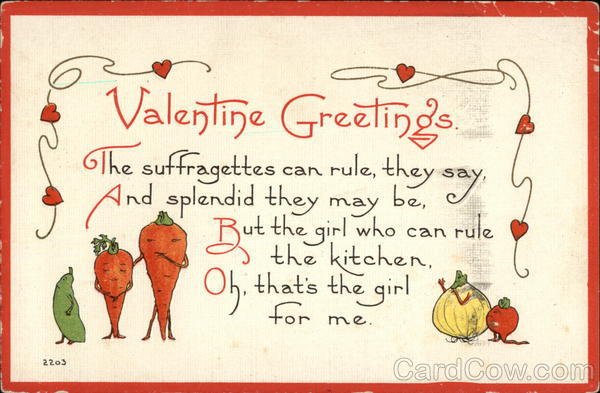 Valentine Greetings.
The suffragettes can rule, they say,
And splendid they may be,
But the girl who can rule
the kitchen,
Oh, that's the girl
for me.
2203
CardCow.com